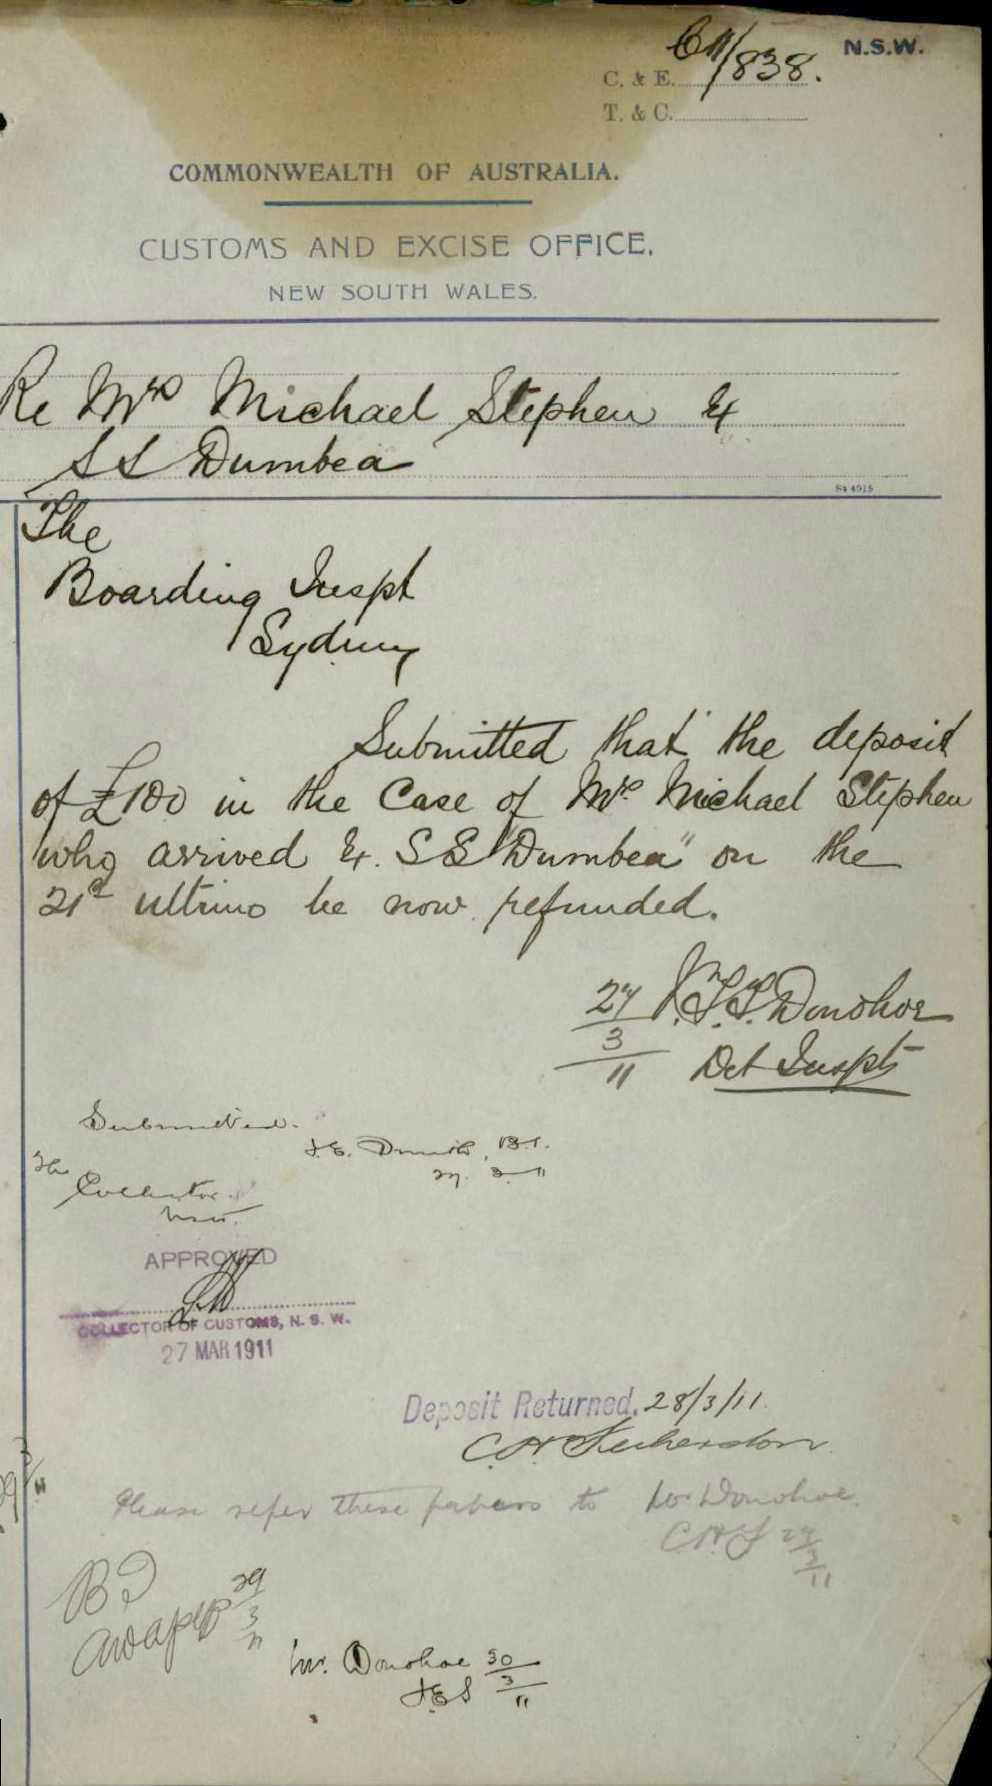 C11/838.
N.S.W.
C. & E.
T. & C.
COMMONWEALTH OF AUSTRALIA.
CUSTOMS AND EXCISE OFFICE,
NEW SOUTH WALES.
Re Mrs Michael Stephen Ex
SS Dumbea
The
Boarding Inspt
Sydney
Submitted that the deposit
of £100 in the Case of Mrs Michael Stephen
who arrived Ex. SS "Dumbea" on the
21st ultimo be now refunded.
27/3/11 J.T.T. Donohoe
Det Inspt
Submitted.
B.I.
27. 3. 11
The
Collector
NSW.
APPROVED
COLLECTOR OF CUSTOMS, N. S. W.
27 MAR 1911
Deposit Returned. 28/3/11
Please refer these papers to Mr Donohoe.
BI
29/3/11
Mr. Donohoe 30/3/11